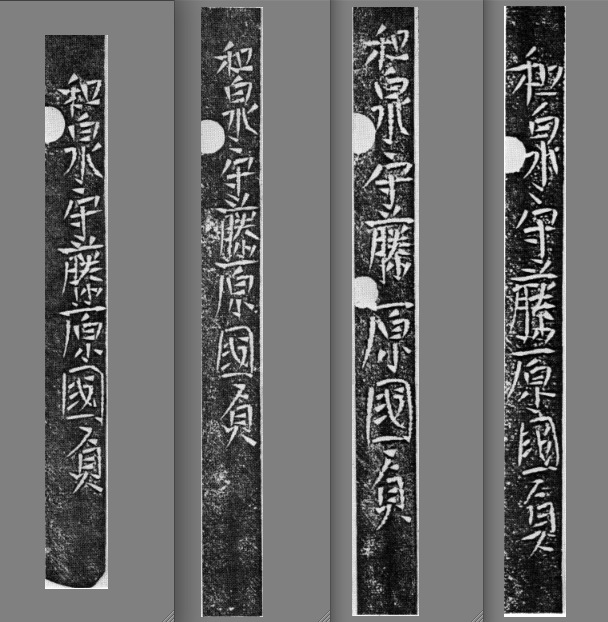 和泉守藤原國貞
和泉守藤原國貞
和泉守藤原國貞
和泉守藤原國貞